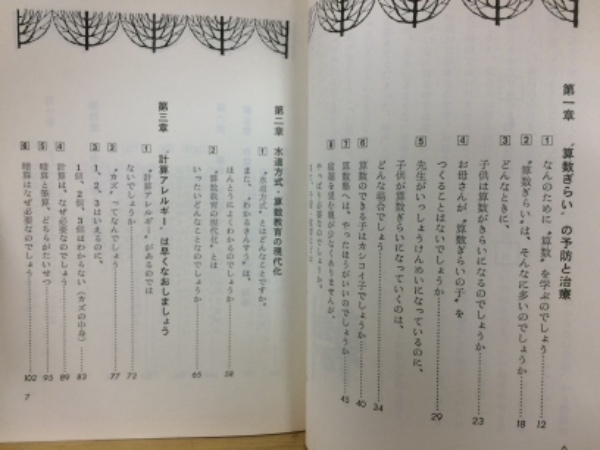 第一章 "算数ぎらい"の予防と治療
1 なんのために"算数"を学ぶのでしょう……12
2 "算数ぎらい"は、そんなに多いのでしょうか……18
3 どんなときに、
子供は算数がきらいになるのでしょうか……23
4 お母さんが"算数ぎらいの子"を
つくることはないでしょうか……29
5 先生がいっしょうけんめいになっているのに、
子供が算数ぎらいになっていくのは、
どんな場合でしょう……34
6 算数のできる子はカシコイ子でしょうか……40
7 算数塾へは、やったほうがいいのでしょうか……45
8 宿題を見る親が少なくありませんが、
第二章 水道方式・算数教育の現代化
1 "水道方式"とはどんなことですか。
また、"わかるさんすう"は、
ほんとうによくわかるのでしょうか……58
2 "算数教育の現代化"とは
いったいどんなことなのでしょうか……65
第三章 "計算アレルギー"は早くなおしましょう
1 "計算アレルギー"があるのでは
ないでしょうか……72
2 "カズ"ってなんでしょう……77
3 1、2、3はいえるのに、
1個、2個、3個はわからない(カズの中身)……83
4 計算は、なぜ必要なのでしょう……89
5 暗算と筆算、どちらがたいせつ……95
6 暗算はなぜ必要なのでしょう……102
7